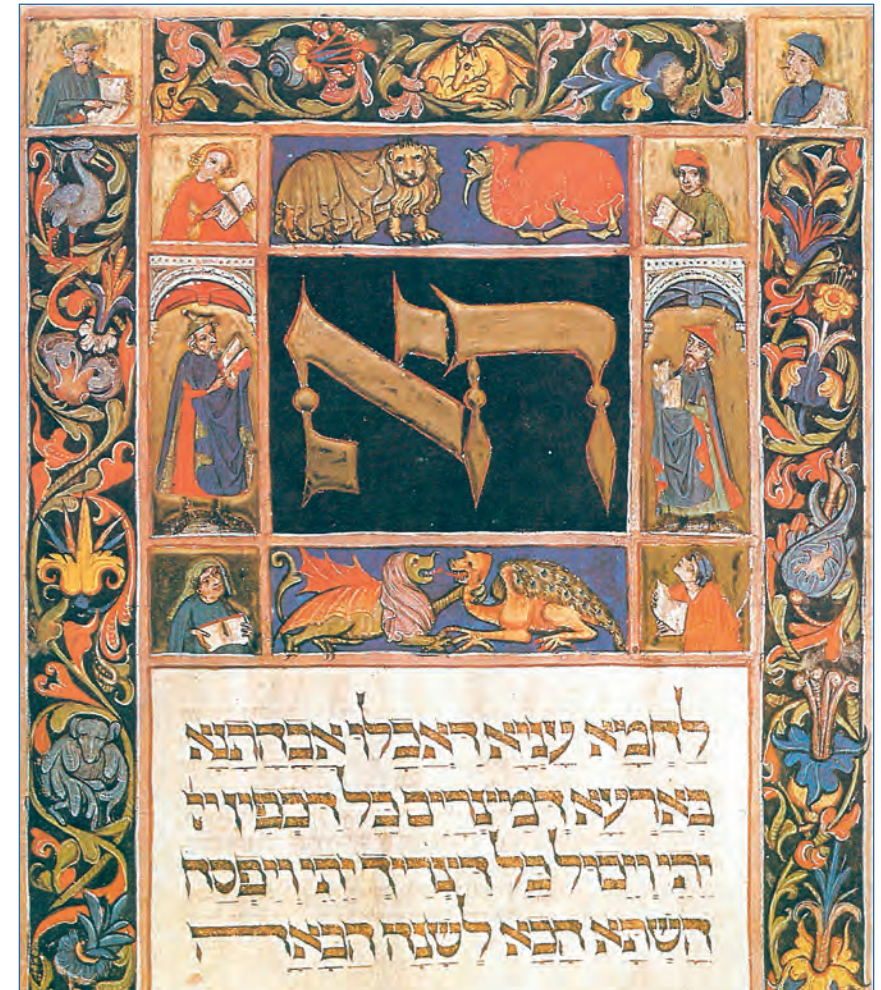 הא
לחמא עניא דאכלו אבהתנא
בארעא דמצרים כל דכפין יי
יתי ויכול כל דצריך יתי ויפסח
השתא הכא לשנה הבאה